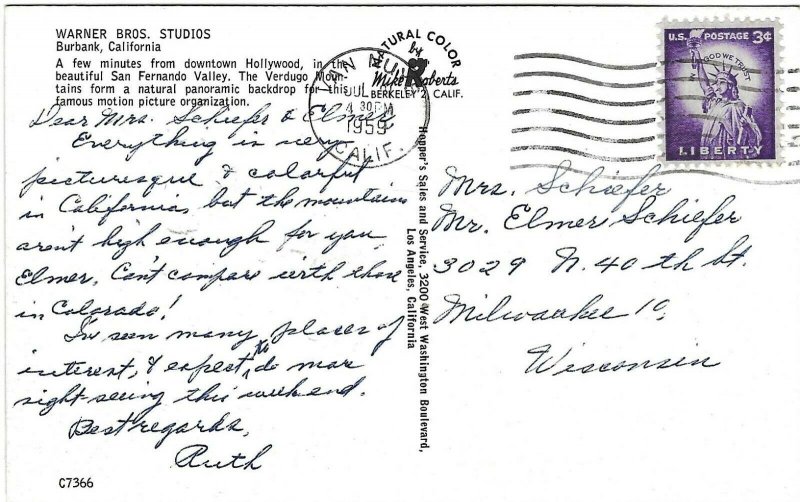 WARNER BROS. STUDIOS
Burbank, California
A few minutes from downtown Hollywood, in the
beautiful San Fernando Valley. The Verdugo Moun-
tains form a natural panoramic backdrop for this
famous motion picture organization.
Dear Mrs. Schiefer & Elmer,
Everything is very
picturesque & colorful
in California, but the mountains
aren't high enough for you,
Elmer. Can't compare with those
in Colorado!
I've seen many places of
interest, & expect to do more
sight-seeing this weekend.
Best regards,
Ruth
C7366
NATURAL COLOR
by
Mike Roberts
BERKELEY 2, CALIF.
JUL
4 30 PM
1959
CALIF.
U.S. POSTAGE 3¢
IN GOD WE TRUST
LIBERTY
Hopper's Sales and Service, 3200 West Washington Boulevard,
Los Angeles, California
Mrs. Schiefer
Mr. Elmer Schiefer
3029 N. 40th St.
Milwaukee 10,
Wisconsin